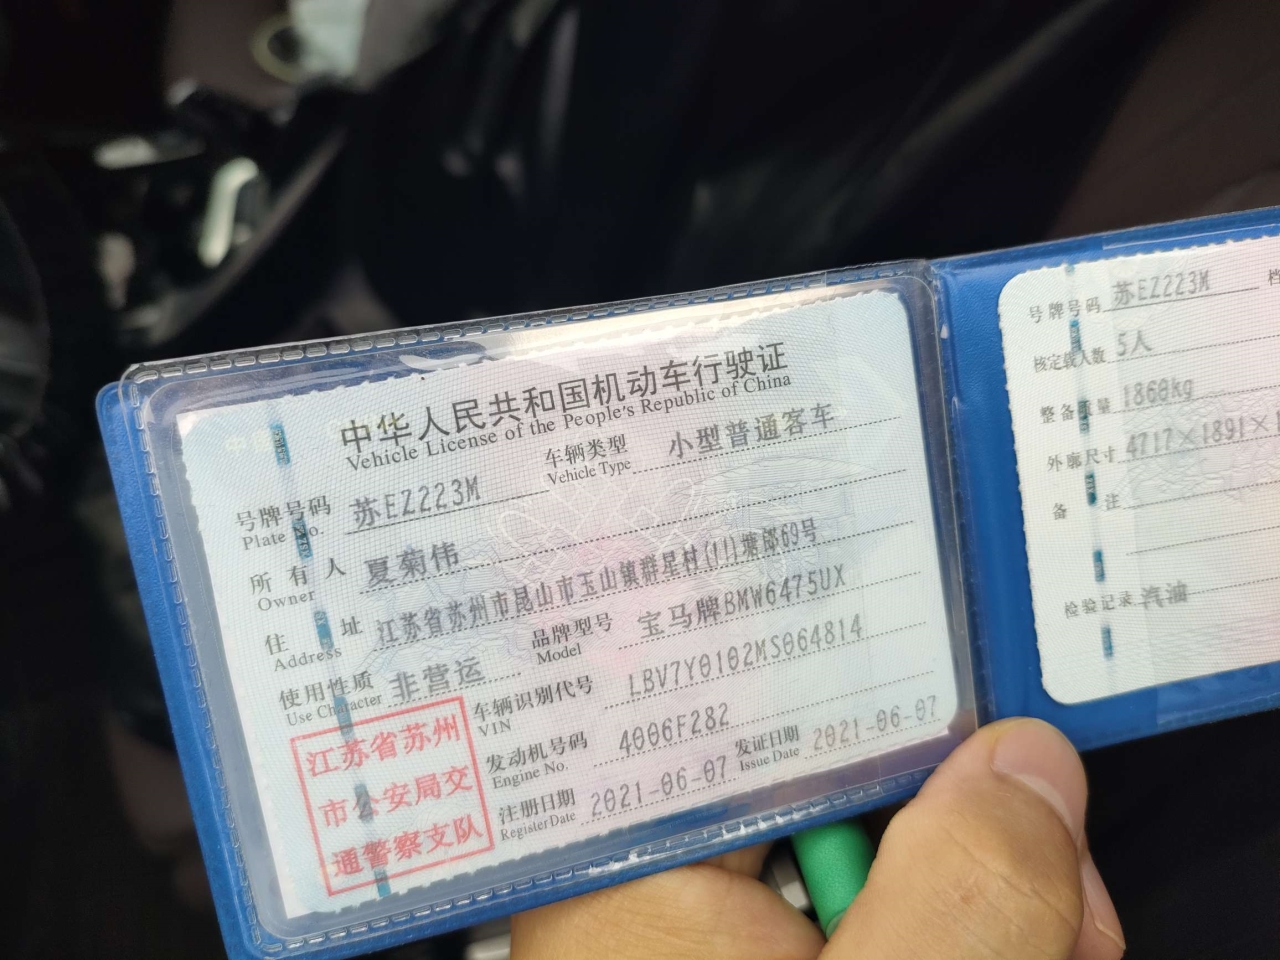 中华人民共和国机动车行驶证
Vehicle License of the People's Republic of China
号牌号码 苏EZ223M 车辆类型 小型普通客车
Plate No. Vehicle Type
所有人 夏菊伟
Owner
住址 江苏省苏州市昆山市玉山镇群星村(11)塘郎69号
Address
使用性质 非营运 品牌型号 宝马牌BMW6475UX
Use Character Model
车辆识别代号 LBV7Y0102MS064814
VIN
发动机号码 4006F282
Engine No.
注册日期 2021-06-07 发证日期 2021-06-07
Register Date Issue Date
江苏省苏州
市公安局交
通警察支队
号牌号码 苏EZ223M 档
核定载人数 5人
整备质量 1860kg
外廓尺寸 4717×1891×1
备注
检验记录 汽油